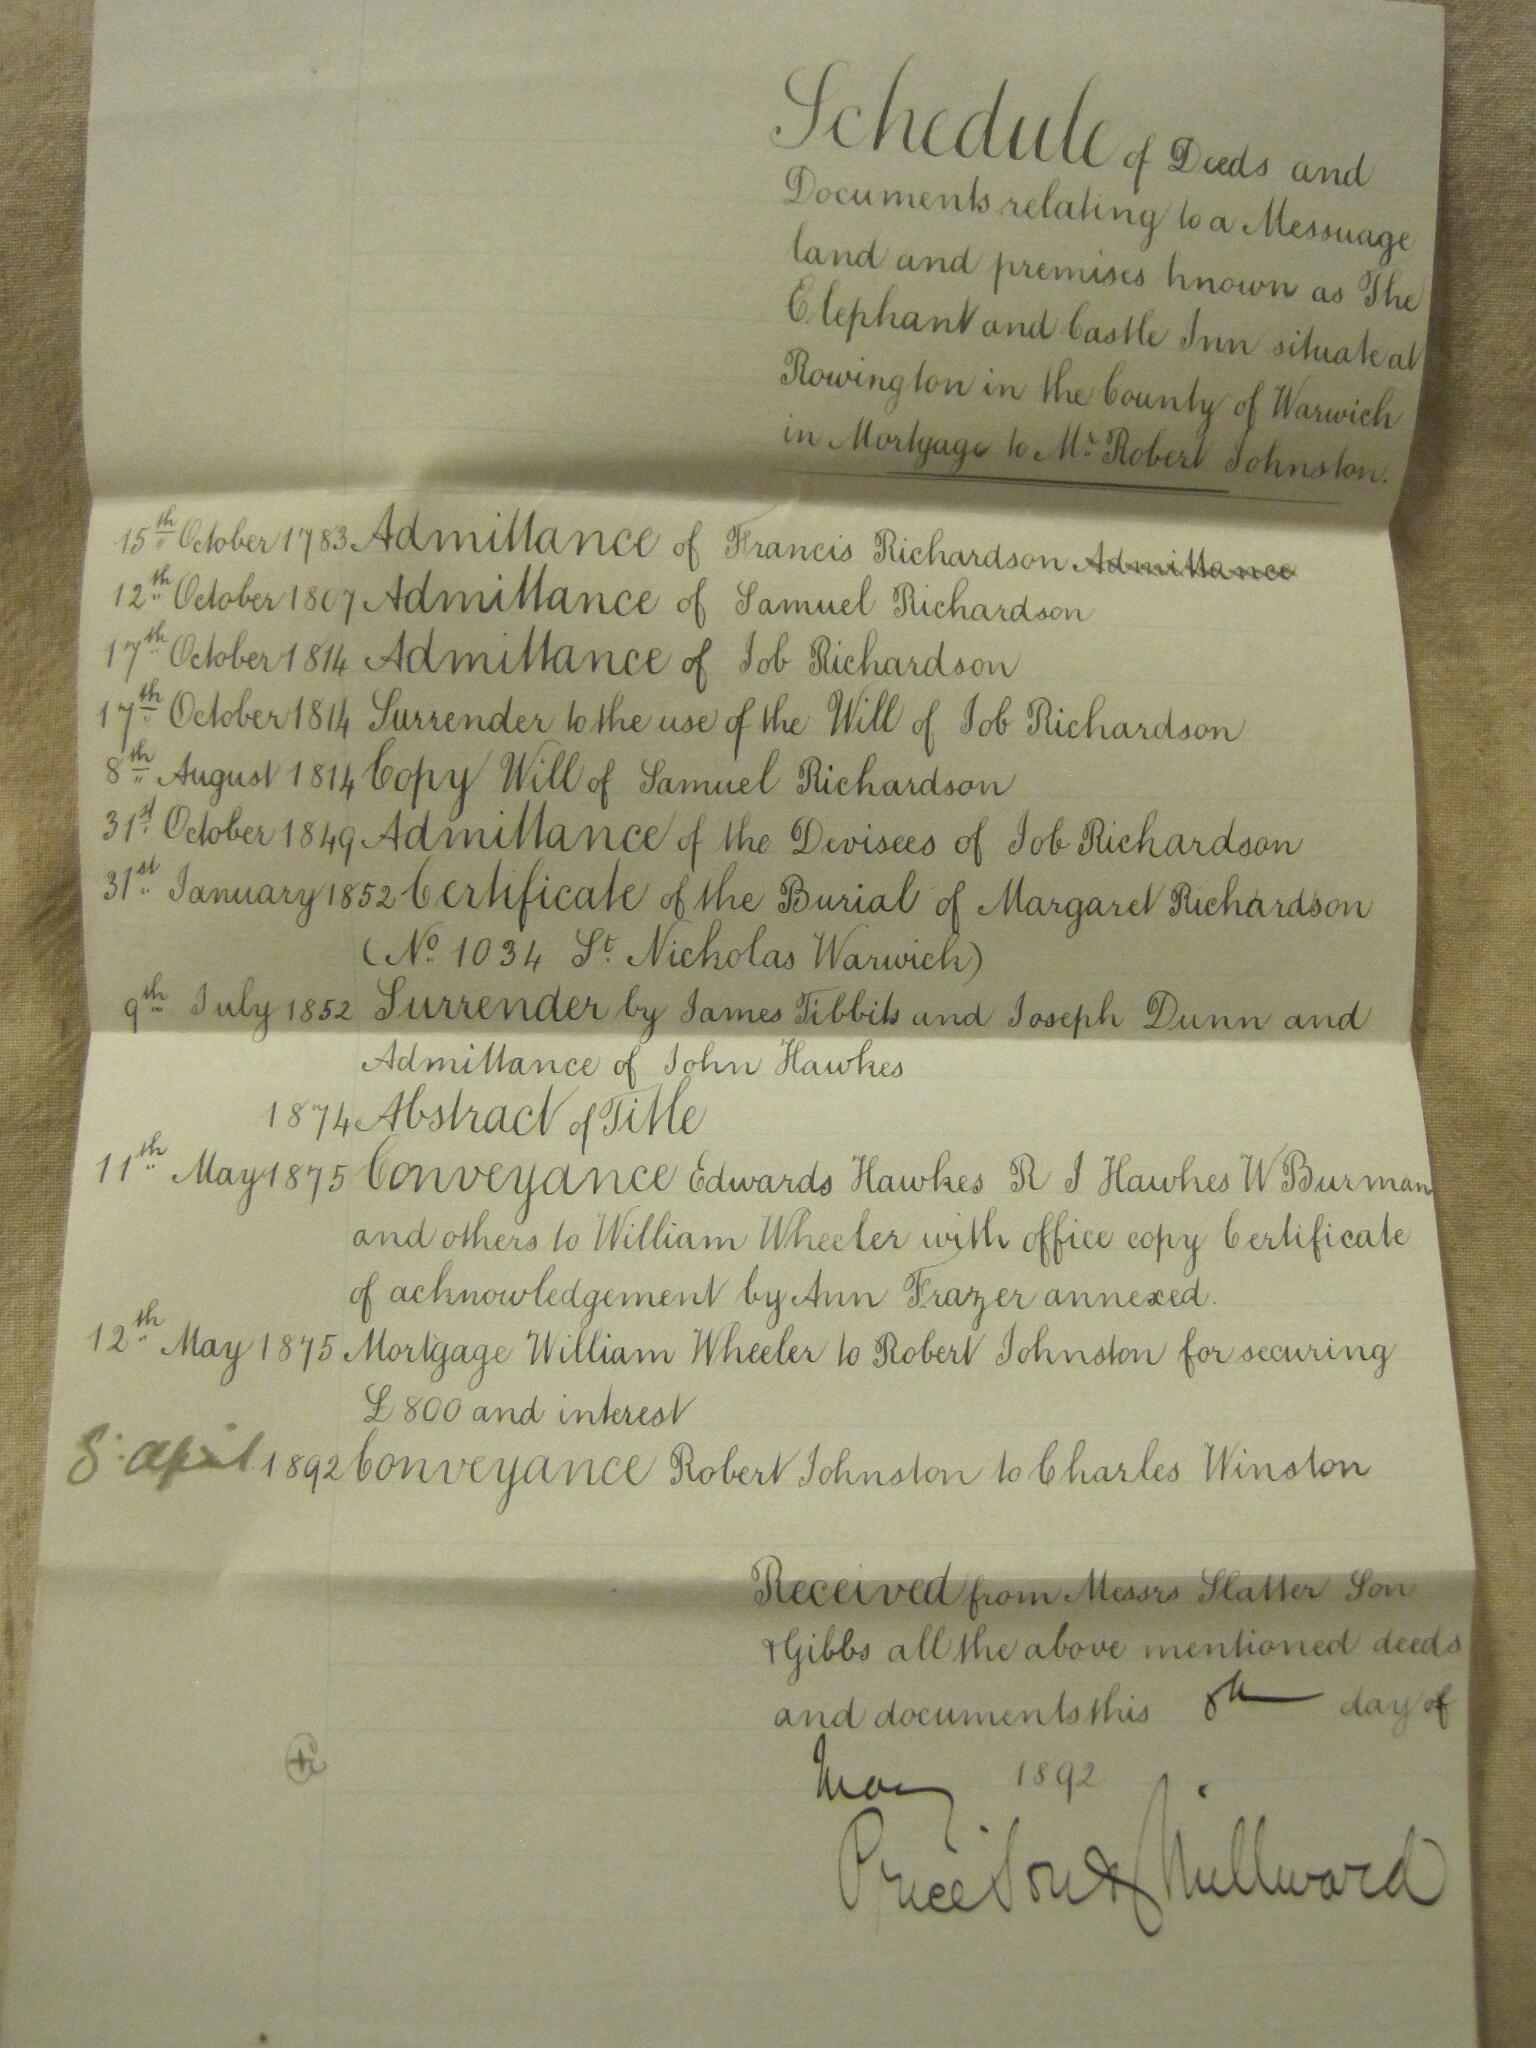 Schedule of Deeds and
Documents relating to a Messuage
land and premises known as The
Elephant and Castle Inn situate at
Rowington in the County of Warwick
in Mortgage to Mr. Robert Johnston.
15th October 1783 Admittance of Francis Richardson Admittance
12th October 1807 Admittance of Samuel Richardson
17th October 1814 Admittance of Job Richardson
17th October 1814 Surrender to the use of the Will of Job Richardson
8th August 1814 Copy Will of Samuel Richardson
31st October 1849 Admittance of the Devisees of Job Richardson
31st January 1852 Certificate of the Burial of Margaret Richardson
(No. 1034 St. Nickolas Warwick)
9th July 1852 Surrender by James Tibbits and Joseph Dunn and
Admittance of John Hawkes
1874 Abstract of Title
11th May 1875 Conveyance Edwards Hawkes R J Hawkes W Burman
and others to William Wheeler with office copy Certificate
of acknowledgement by Ann Frazer annexed.
12th May 1875 Mortgage William Wheeler to Robert Johnston for securing
£800 and interest
8 April 1892 Conveyance Robert Johnston to Charles Winston
Received from Messrs Slatter Son
& Gibbs all the above mentioned deeds
and documents this 8th day of
May 1892
Price Son & Millward